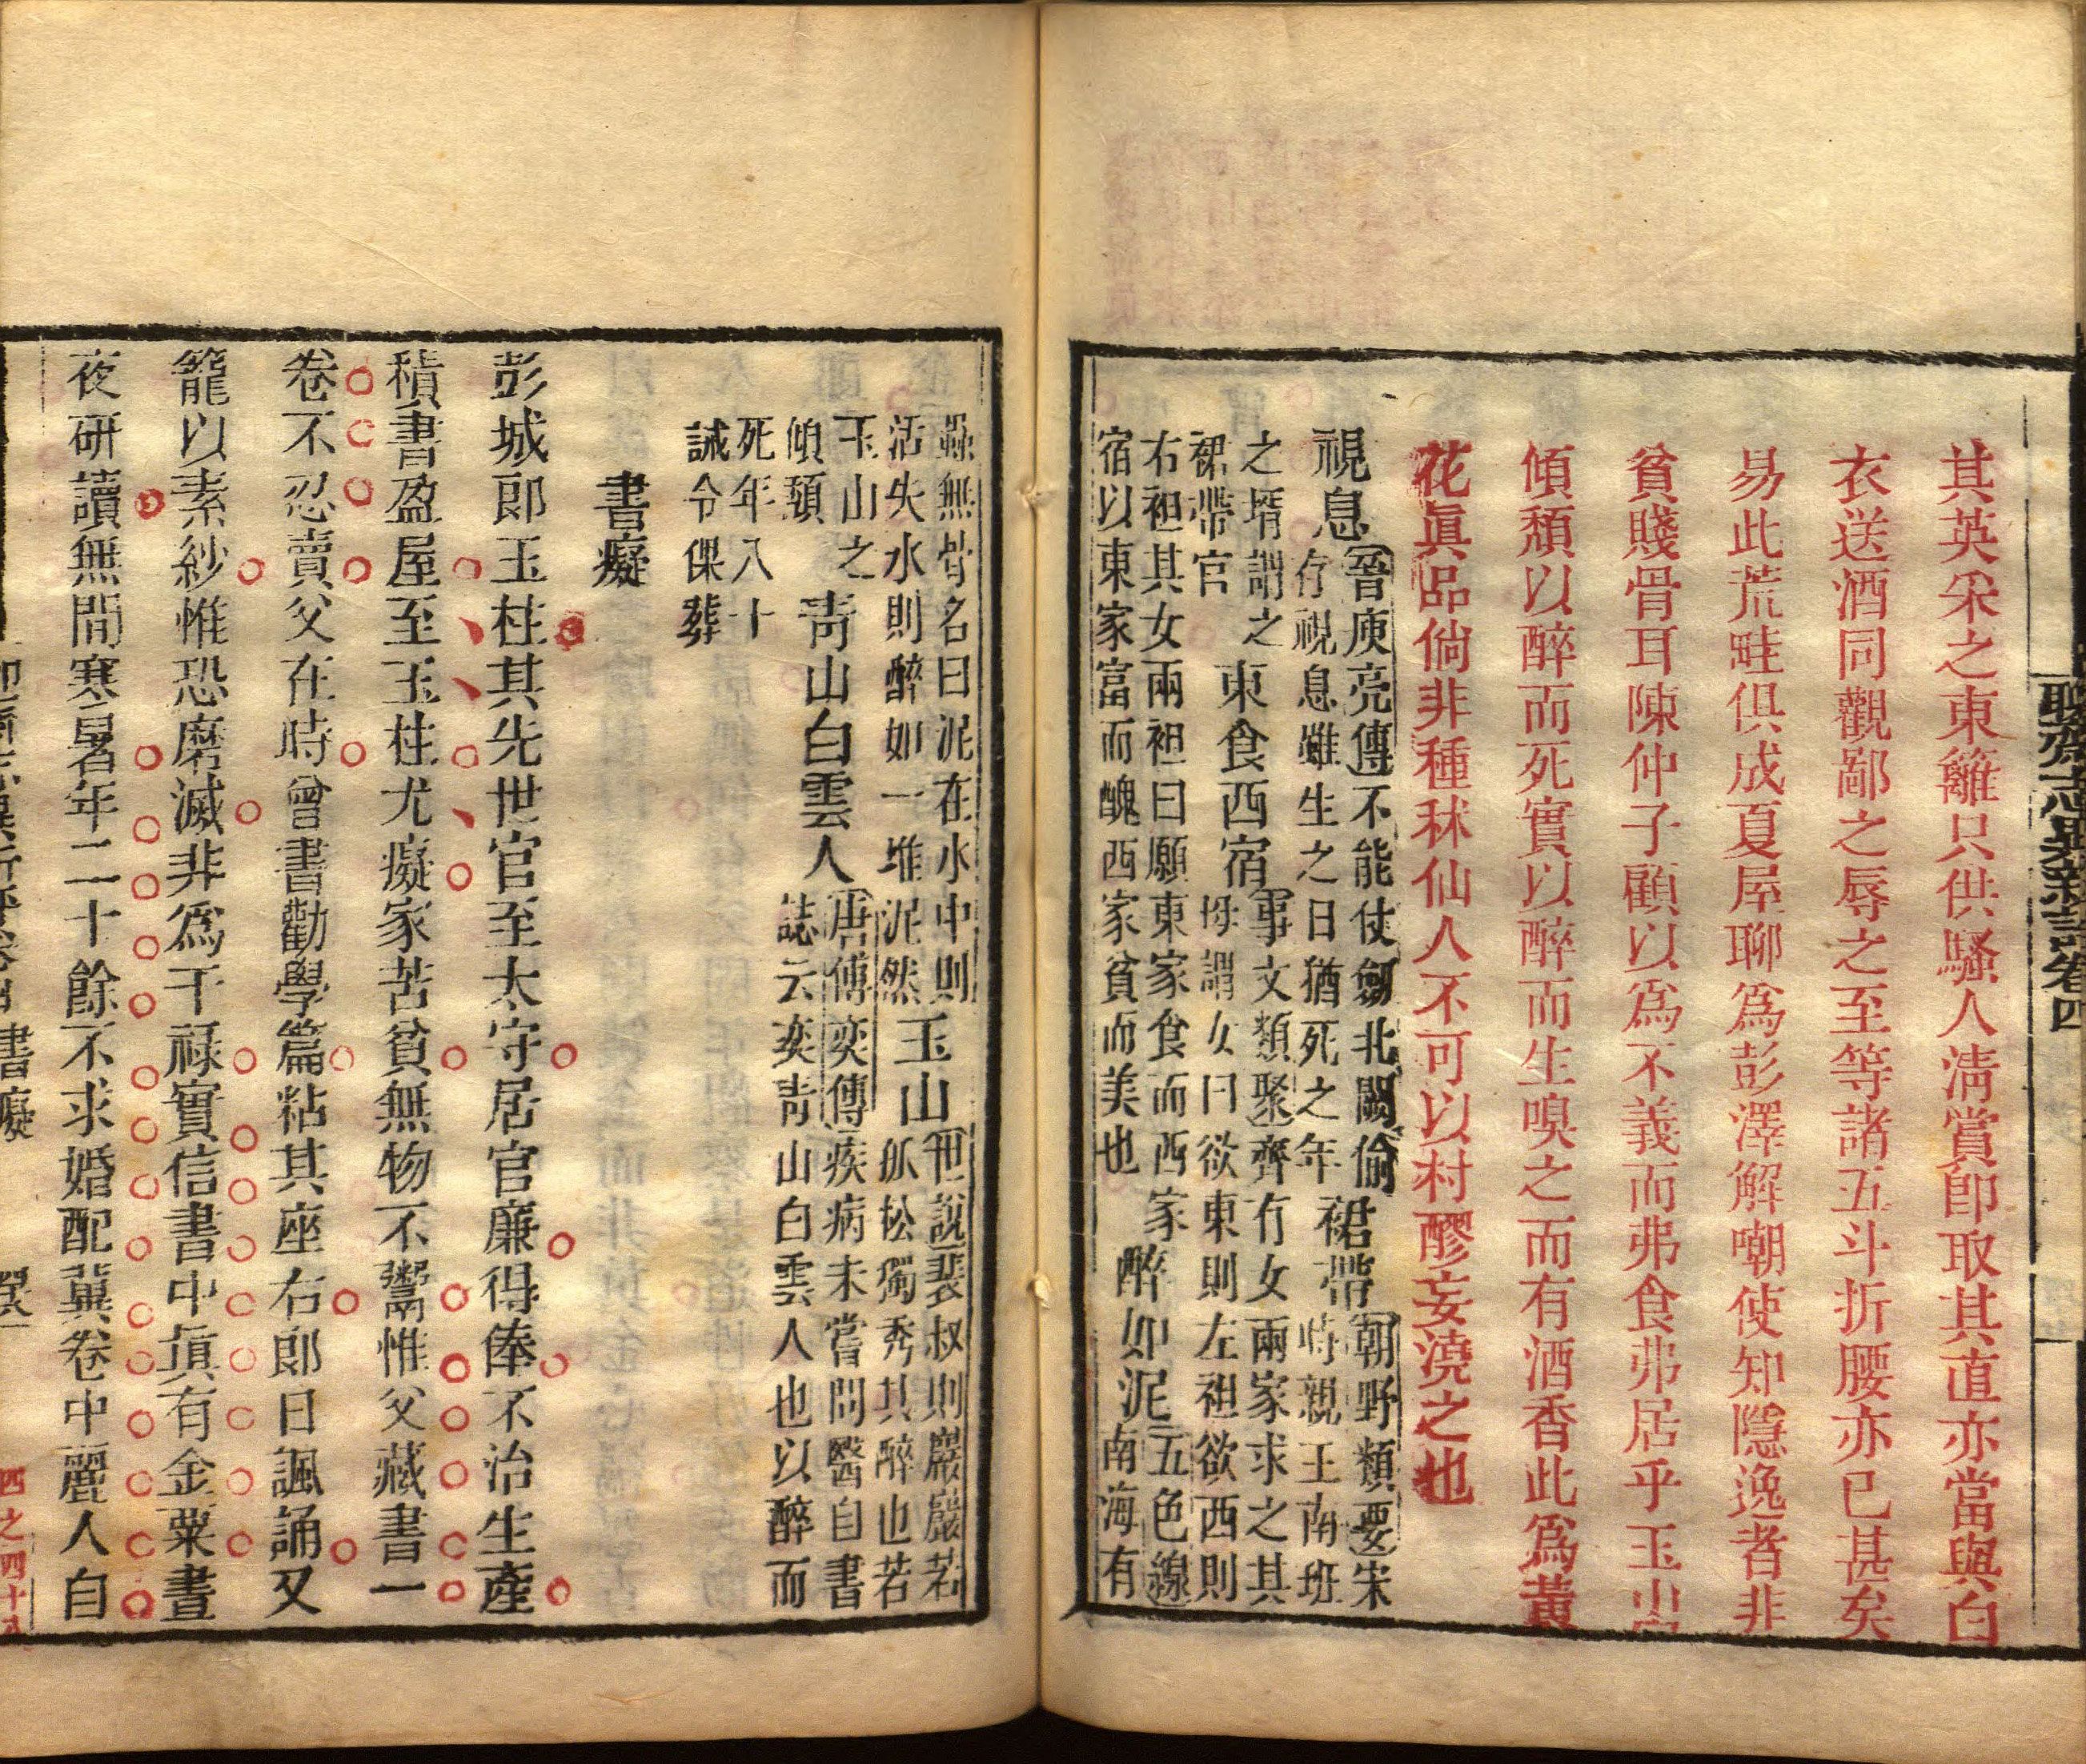 聊齋志異新評卷四
其英采之東籬只供騷人淸賞卽取其直亦當與白
衣送酒同觀鄙之辱之至等諸五斗折腰亦已甚矣
易此荒畦俱成夏屋聊爲彭澤解嘲使知隱逸者非
貧賤骨耳陳仲子顧以爲不義而弗食弗居乎玉山
傾頹以醉而死實以醉而生嗅之而有酒香此爲黃
花眞品倘非種秫仙人不可以村醪妄澆之也
視息
晉庾亮傳不能仗劒北闕偷
存視息雖生之日猶死之年
裙帶
朝野類要宋
時親王南班
之壻謂之
裙帶官
東食西宿
事文類聚齊有女兩家求之其
母謂女曰欲東則左袒欲西則
右袒其女兩袒曰願東家食而西家
宿以東家富而醜西家貧而美也
醉如泥
五色線
南海有
蟲無骨名曰泥在水中則
活失水則醉如一堆泥然
玉山
世說裴叔則巖巖若
孤松獨秀其醉也若
玉山之
傾頹
靑山白雲人
唐傅奕傳疾病未嘗問醫自書
誌云奕靑山白雲人也以醉而
死年八十
誡令倮葬
書癡
彭城郎玉柱其先世官至太守居官廉得俸不治生產
積書盈屋至玉柱尤癡家苦貧無物不鬻惟父藏書一
卷不忍賣父在時曾書勸學篇粘其座右郎日諷誦又
籠以素紗惟恐磨滅非爲干祿實信書中眞有金粟晝
夜研讀無間寒暑年二十餘不求婚配冀卷中麗人自
書癡
四之四十